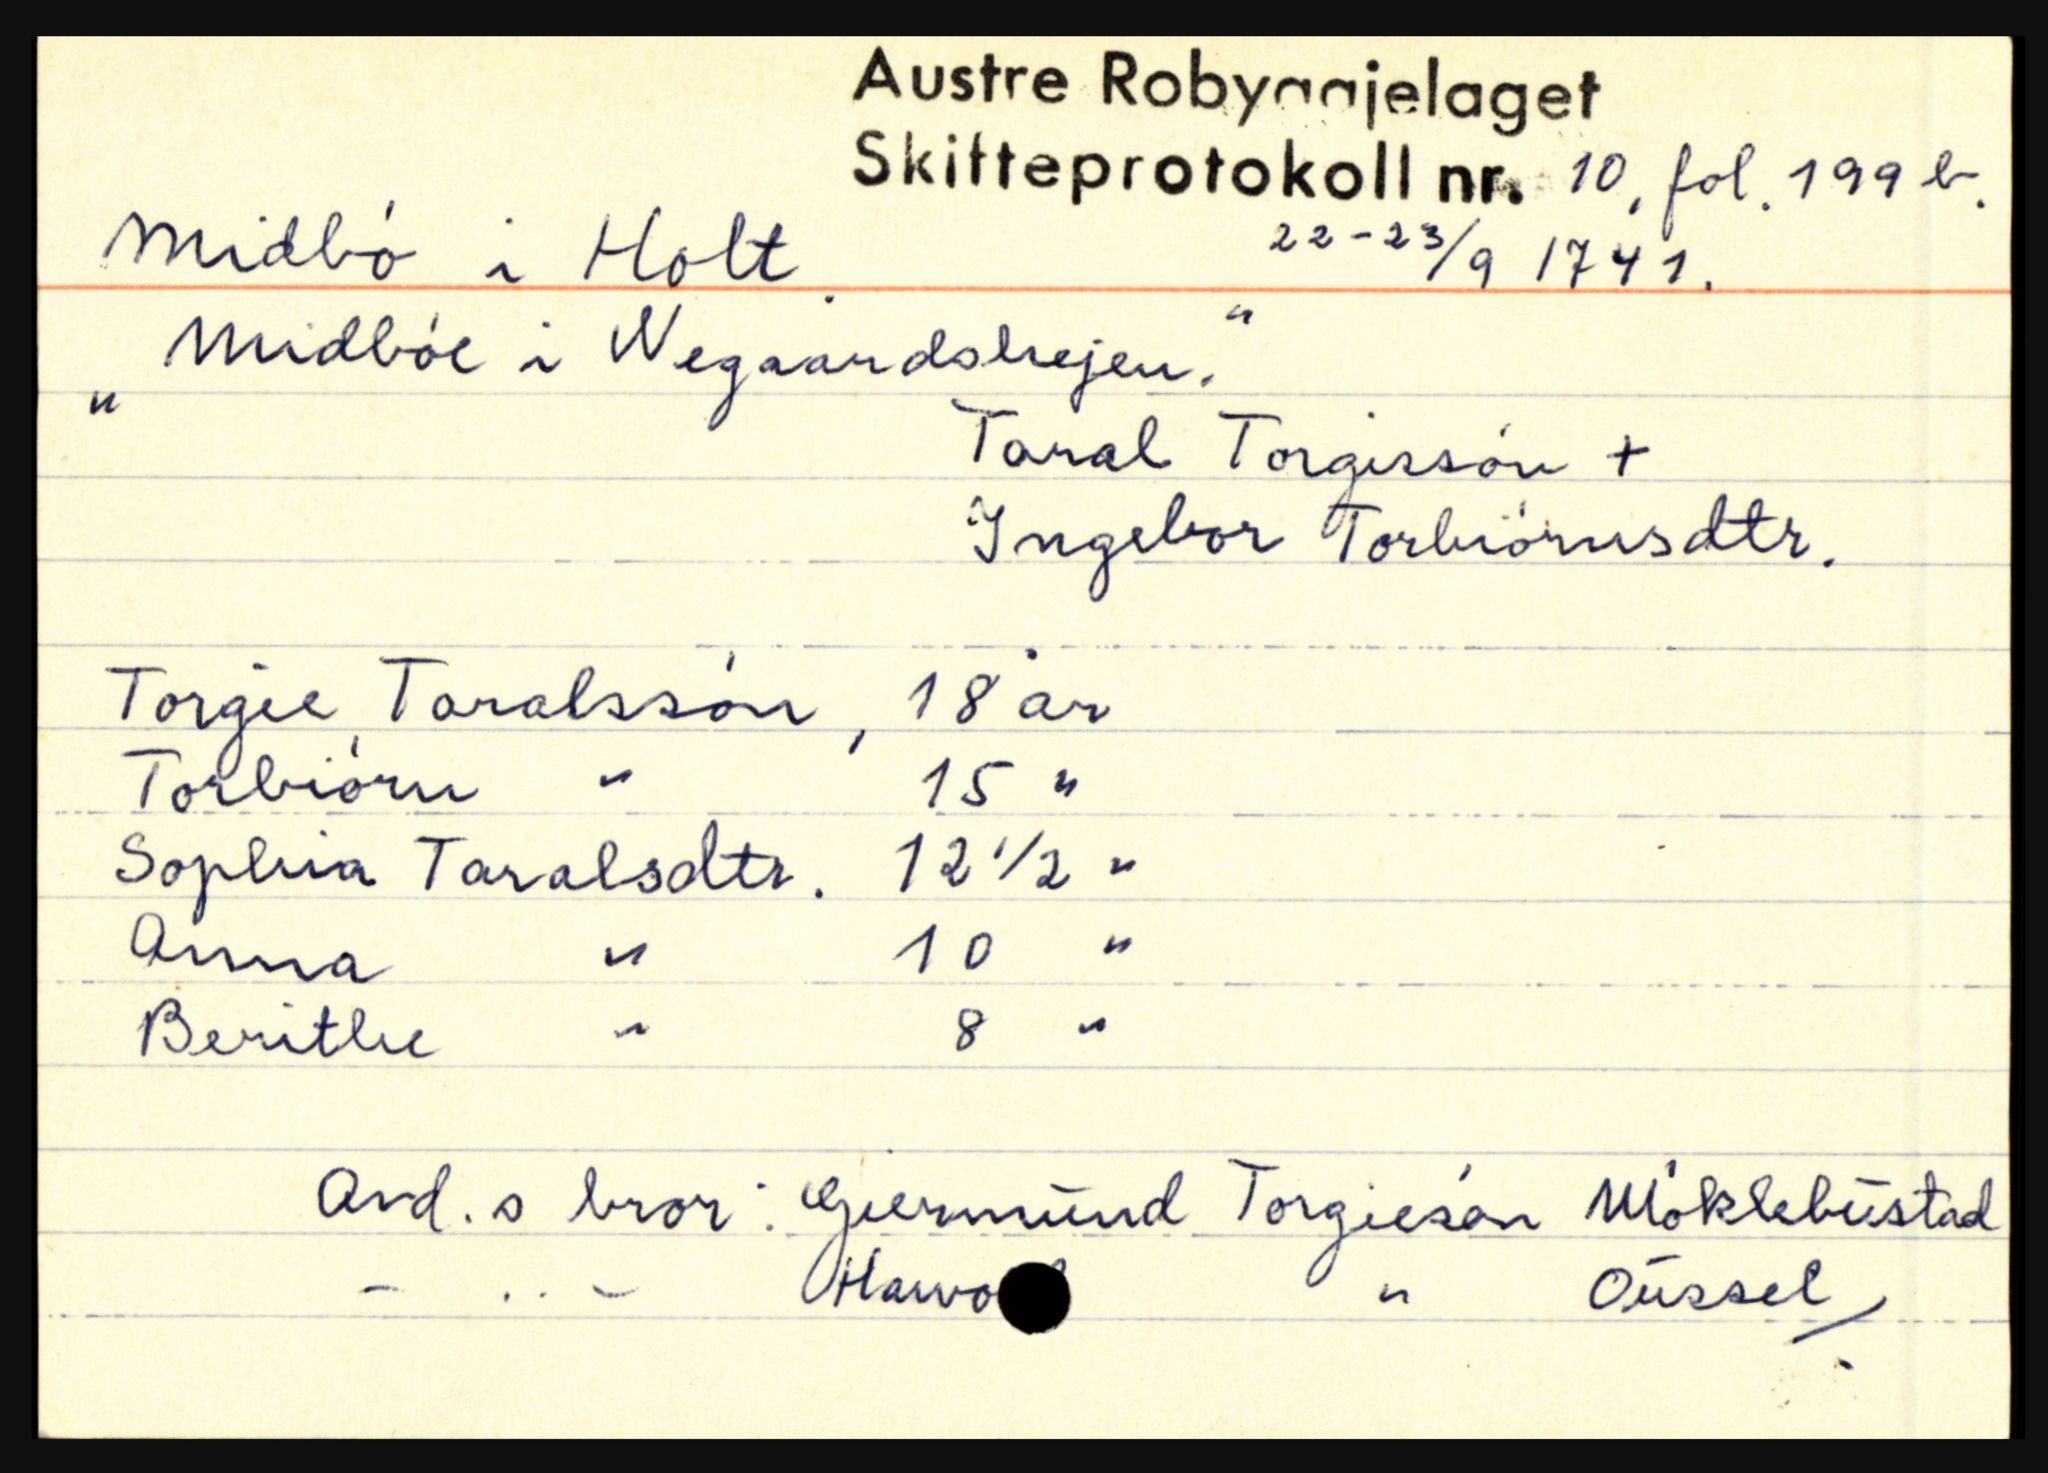 Austre Robyggjelaget
Skifteprotokoll nr. 10, fol. 199 b.
Midbó i Holt. 22-23/9 1741.
"Midbóe i Wegaardshejen."
Taral Torgissón +
Ingebor Torbiórnsdtr.
Torgie Taralssón, 18 år
Torbiórn " 15 "
Sophia Taralsdtr. 12 1/2 "
Anna " 10 "
Berithe " 8 "
Avd. s bror: Giermünd Torgiesón Móklebüstad
- .. - " Oüssel